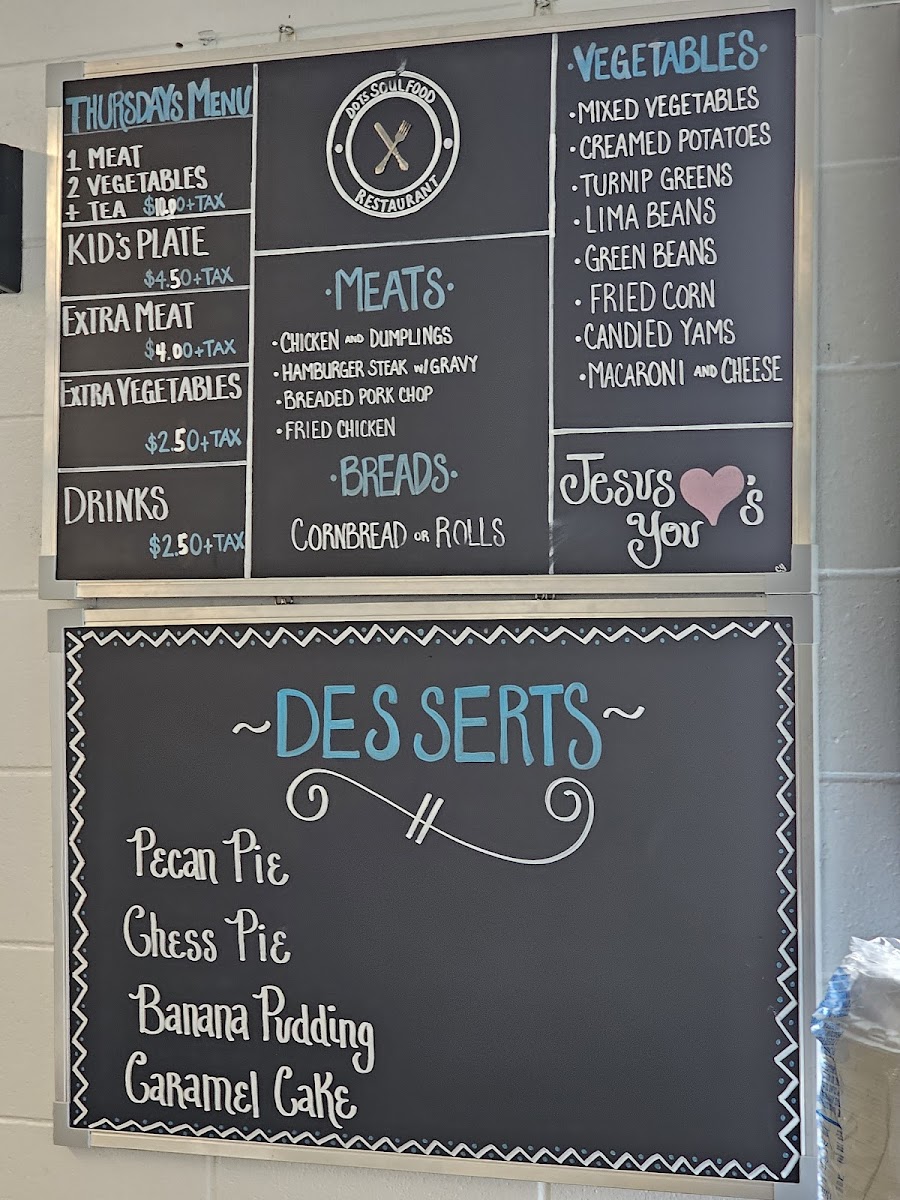 THURSDAYS MENU
1 MEAT
2 VEGETABLES
+ TEA
KID'S PLATE
$4.50+TAX
EXTRA MEAT
$4.00+TAX
EXTRA VEGETABLES
$2.50+TAX
DRINKS
$2.50+TAX
DOTS SOUL FOOD
RESTAURANT
·MEATS·
·CHICKEN AND DUMPLINGS
·HAMBURGER STEAK W/GRAVY
·BREADED PORK CHOP
·FRIED CHICKEN
·BREADS·
CORNBREAD OR ROLLS
·VEGETABLES·
·MIXED VEGETABLES
·CREAMED POTATOES
·TURNIP GREENS
·LIMA BEANS
·GREEN BEANS
·FRIED CORN
·CANDIED YAMS
·MACARONI AND CHEESE
Jesus ♥'s
You
~DESSERTS~
Pecan Pie
Chess Pie
Banana Pudding
Caramel Cake